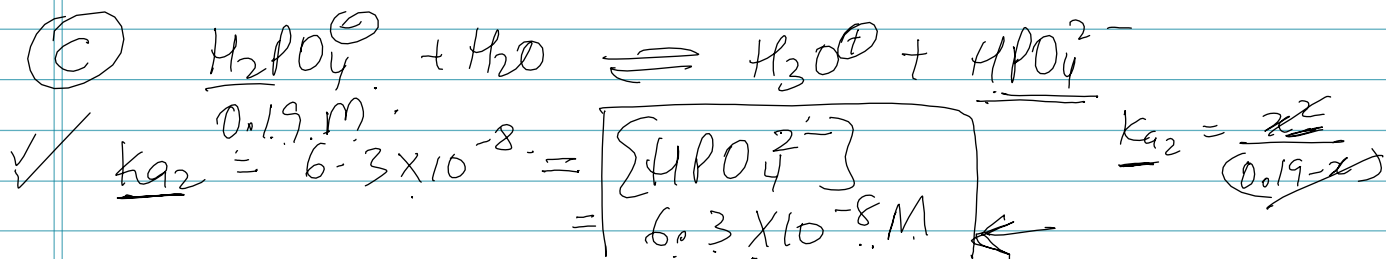 (C) H₂PO₄⁻ + H₂O ⇌ H₃O⁺ + HPO₄²⁻
0.19 M.
✓ Ka₂ = 6.3×10⁻⁸ = [HPO₄²⁻]
= 6.3×10⁻⁸ M ←
Ka₂ = x²/(0.19-x)